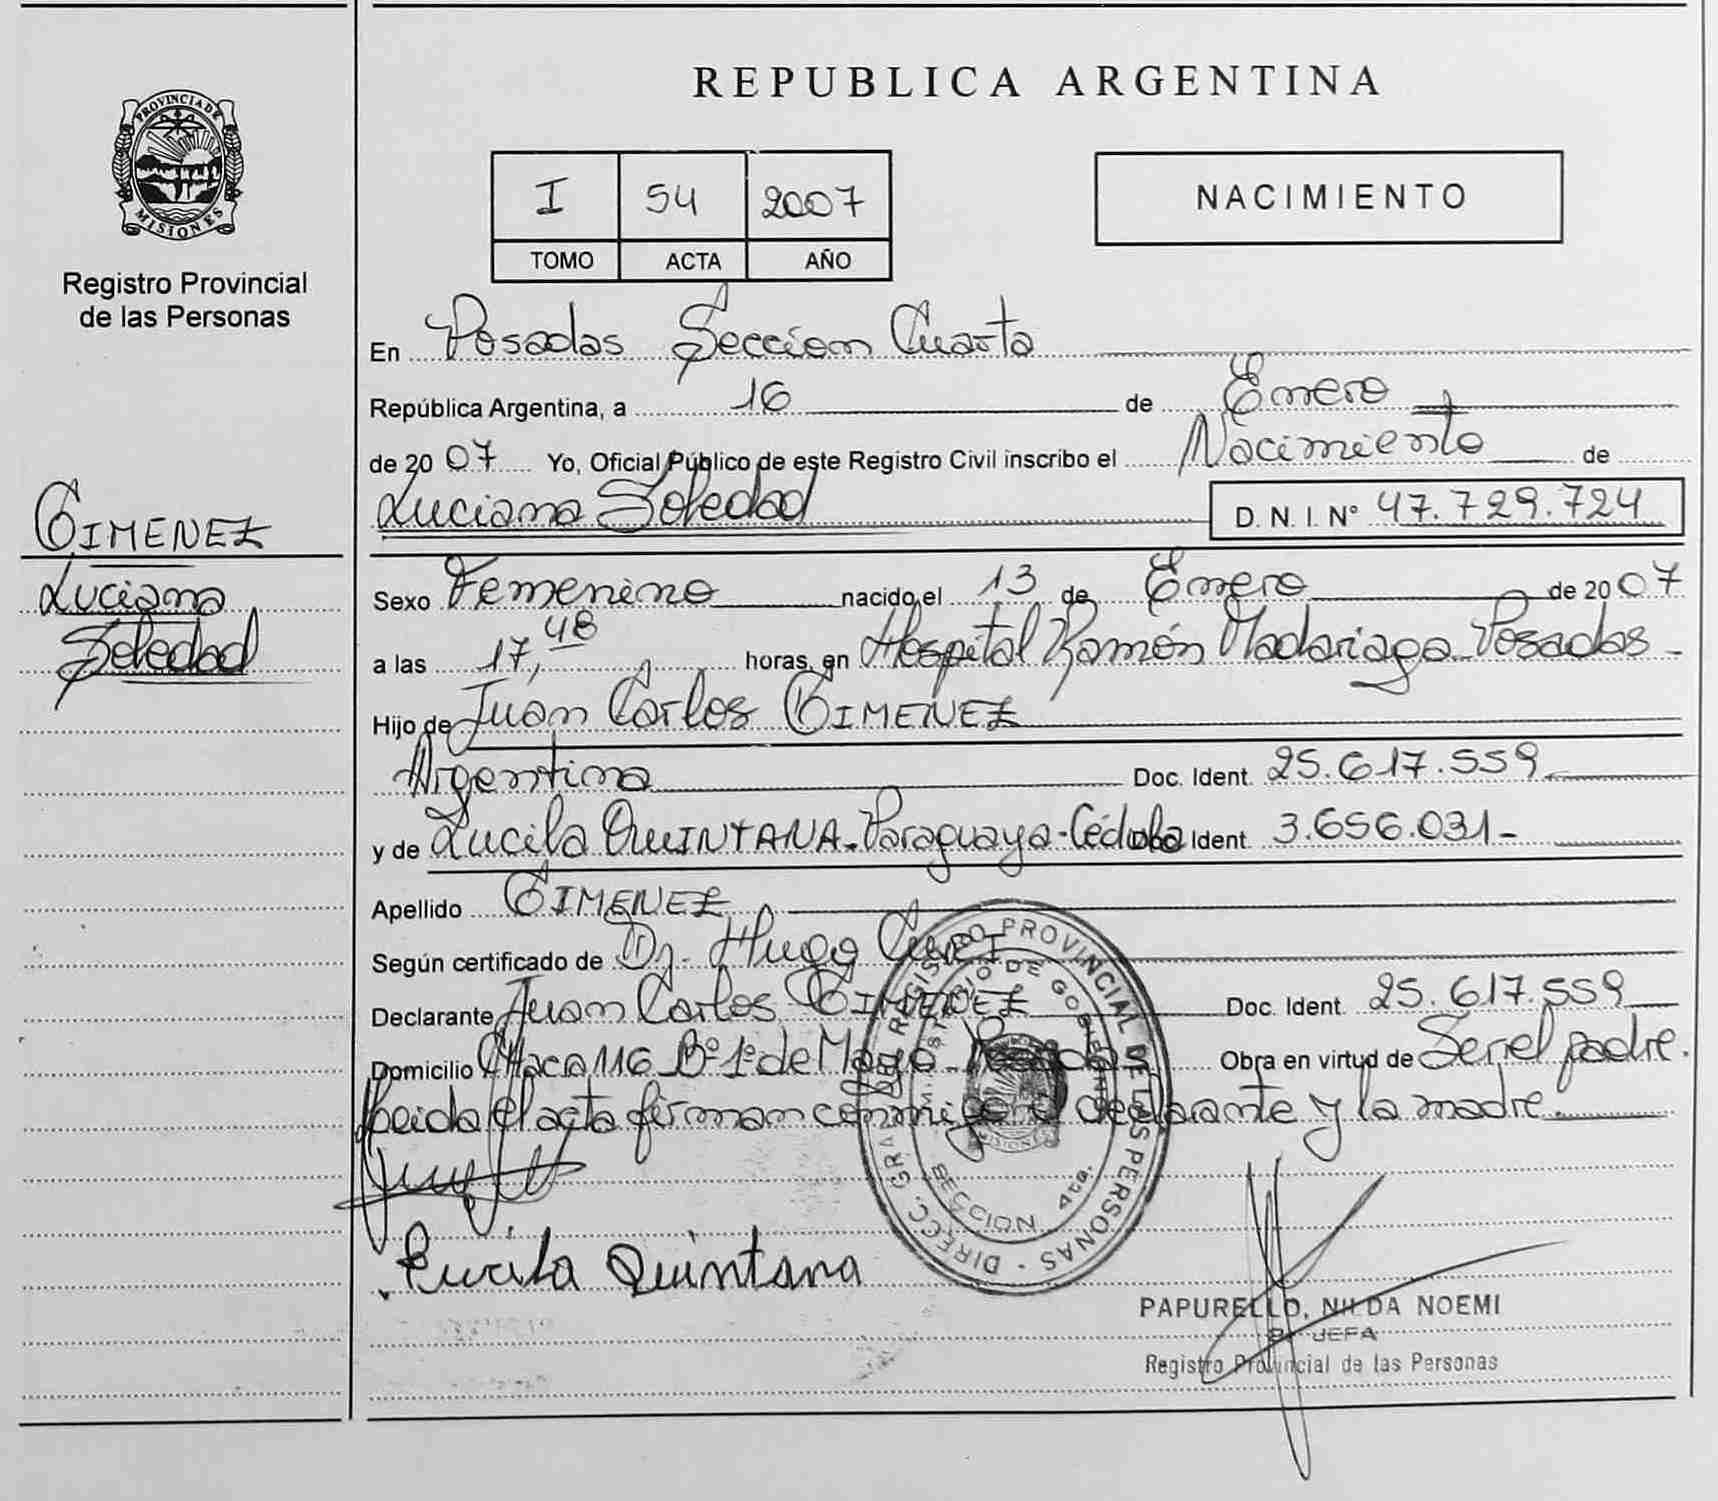 PROVINCIA DE
MISIONES
Registro Provincial
de las Personas
GIMENEZ
Luciana
Soledad
REPUBLICA ARGENTINA
I 54 2007
TOMO ACTA AÑO
NACIMIENTO
En Posadas Sección Cuarta
República Argentina, a 16 de Enero
de 2007 Yo, Oficial Público de este Registro Civil inscribo el Nacimiento de
Luciana Soledad D. N. I. N° 47.729.724
Sexo Femenino nacido el 13 de Enero de 2007
a las 17,48 horas, en Hospital Ramón Madariaga Posadas
Hijo de Juan Carlos GIMENEZ
Argentina Doc. Ident. 25.617.559
y de Lucila QUINTANA - Paraguaya - Cédula Ident. 3.656.031-
Apellido GIMENEZ
Según certificado de Dr. Hugo
Declarante Juan Carlos GIMENEZ Doc. Ident. 25.617.559
Domicilio 116 B° 1° de Mayo - Posadas Obra en virtud de Ser el padre.
Leida el acta firman conmigo el declarante y la madre.
DIRECC. GRAL. DEL REGISTRO PROVINCIAL DE LAS PERSONAS
MINISTERIO DE GOBIERNO
SECCION 4ta.
MISIONES
Lucila Quintana
PAPURELLO, NILDA NOEMI
JEFA
Registro Provincial de las Personas